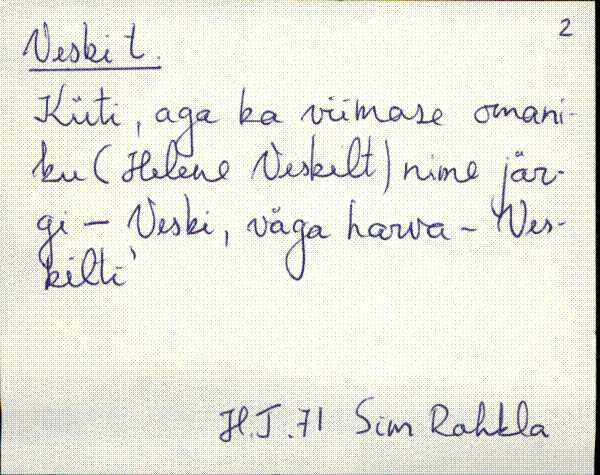 2
Veski t.
Küti, aga ka viimase omani-
ku (Helene Veskilt) nime jär-
gi – Veski, väga harva – Ves-
kilti'
H.J.71 Sim Rahkla